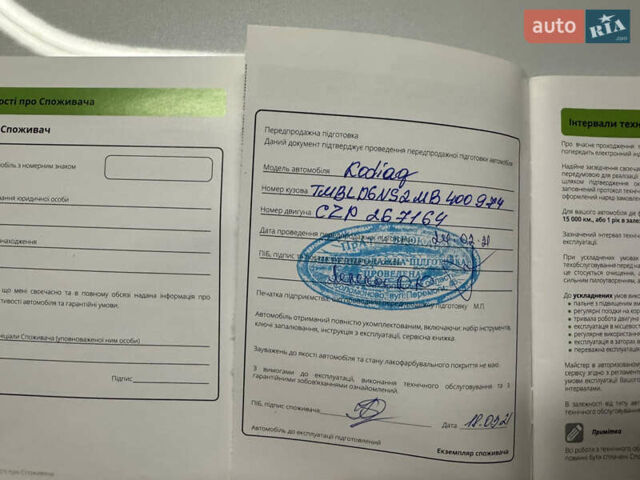 auto RIA.com
ості про Споживача
Споживач
обіль з номерним знаком
ування юридичної особи)
знаходження
що мені своєчасно та в повному обсязі надана інформація про
тивості автомобіля та гарантійні умови.
ціали Споживача (уповноваженої ним особи)
Підпис
Передпродажна підготовка
Даний документ підтверджує проведення передпродажної підготовки автомобіля
Модель автомобіля Kodiaq
Номер кузова TMBLD6NS2MB400974
Номер двигуна CZP 267164
Дата проведення
ПІБ, підпис
ПЕРЕДПРОДАЖНА ПІДГОТОВКА
ПРОВЕДЕНА
Печатка підприємства, М.П.
Автомобіль отриманий повністю укомплектованим, включаючи: набір инструментів,
ключі запалювання, інструкція з експлуатації, сервісна книжка.
Зауважень до якості автомобіля та стану лакофарбувального покриття не маю.
З вимогами до експлуатації, виконання технічного обслуговування та з
гарантійними зобов'язаннями ознайомлений.
ПІБ, підпис споживача
Дата 18.03.21
Автомобіль до експлуатації підготовлений
Екземпляр споживача
Інтервали техні
Про вчасне проходження т
попередить електронний
Надійне засвідчення своєча
передумовою для реалізації
шляхом підтвердження
заповнений протокол техніч
оформлений наряд замовлен
Для вашого автомобіля
15 000 км, або 1 рік в зале
Зазначений інтервал техніч
експлуатації.
При ускладнених умовах
техобслуговування перед на
це стосується очищення,
сильним пилоутворенням, а
До ускладнених умов
пальне з підвищеним вм
регулярні поїздки на кор
тривала робота двигуна
експлуатація в місцевост
регулярне використання
експлуатація в заторах в
переважна експлуатація
Майстер в авторизованому
сервісу згідно з регламент
умови експлуатації Вашого
інтервалах.
В залежності від типу авто
технічного обслуговування
Примітка
Всі роботи з технічного об
повинні бути сплачені Спо